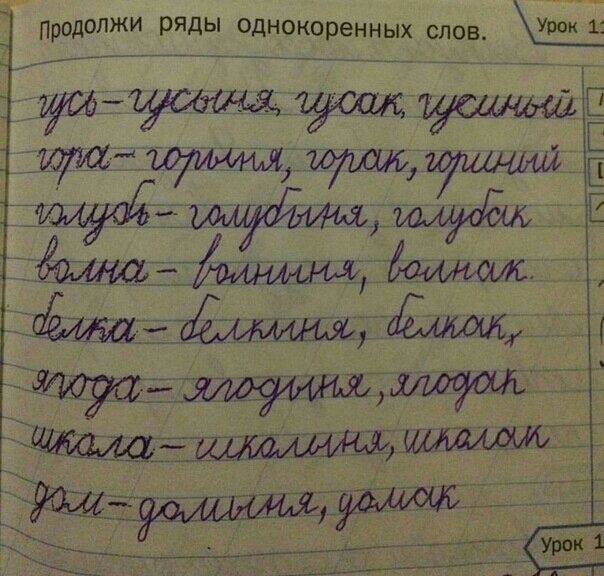 Продолжи ряды однокоренных слов.
Урок 11
гусь – гусыня, гусак, гусиный
гора – горыня, горак, гориный
голубь – голубыня, голубак
волна – волныня, волнак.
белка – белкыня, белкак,
ягода – ягодыня, ягодак
школа – школыня, школак
дом – домыня, домак
Урок 1